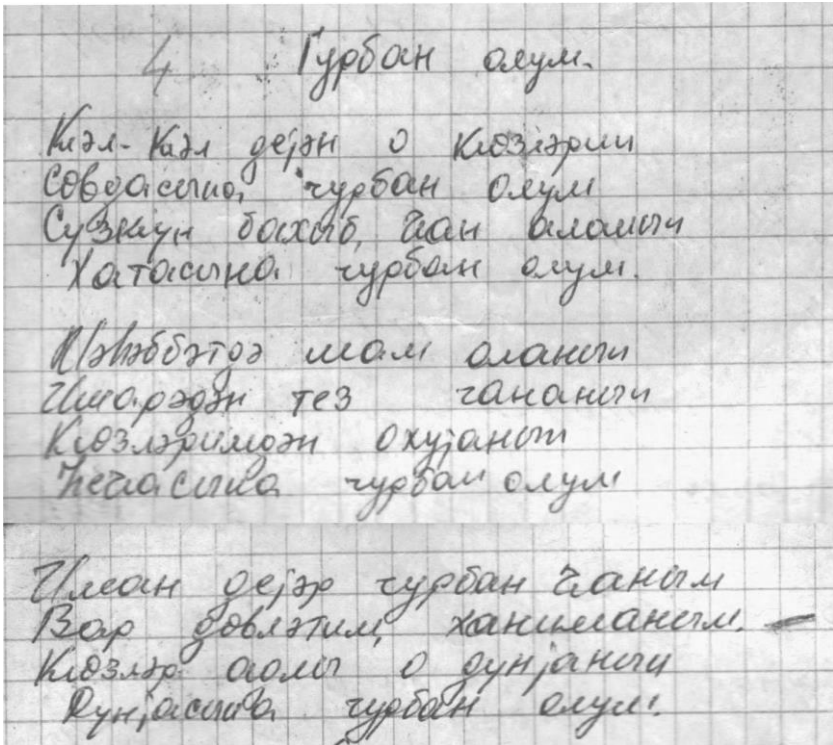 4 Гурбан олум.
Ҝәл-Ҝәл дејән о ҝөзләрин
Совдасына гурбан олум
Сүзҝүн бахыб, ҹан аланын
Хатасына гурбан олум.
Мәһәббәтдә шам оланын
Ишарәдән тез гананын
Ҝөзләримдән охујанын
Һеҹасына гурбан олум
Иман дејәр гурбан ҹаным
Вар дөвләтим, ханиманым.
Ҝөзләр адлы о дүнјанын
Дүнјасына гурбан олум.